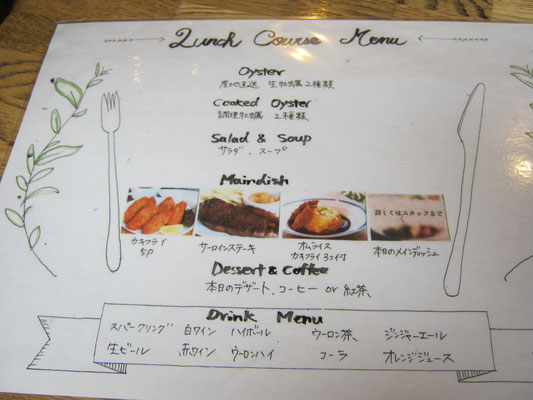 Lunch Course Menu
Oyster
産地直送 生牡蠣2種類
Cooked Oyster
調理牡蠣 2種類
Salad & Soup
サラダ、スープ
Maindish
詳しくはスタッフまで
カキフライ サーロインステーキ オムライス 本日のメインディッシュ
5P カキフライ3コ付
Dessert & Coffee
本日のデザート、コーヒー or 紅茶、
Drink Menu
スパークリング 白ワイン ハイボール ウーロン茶、 ジンジャーエール
生ビール 赤ワイン ウーロンハイ コーラ オレンジジュース